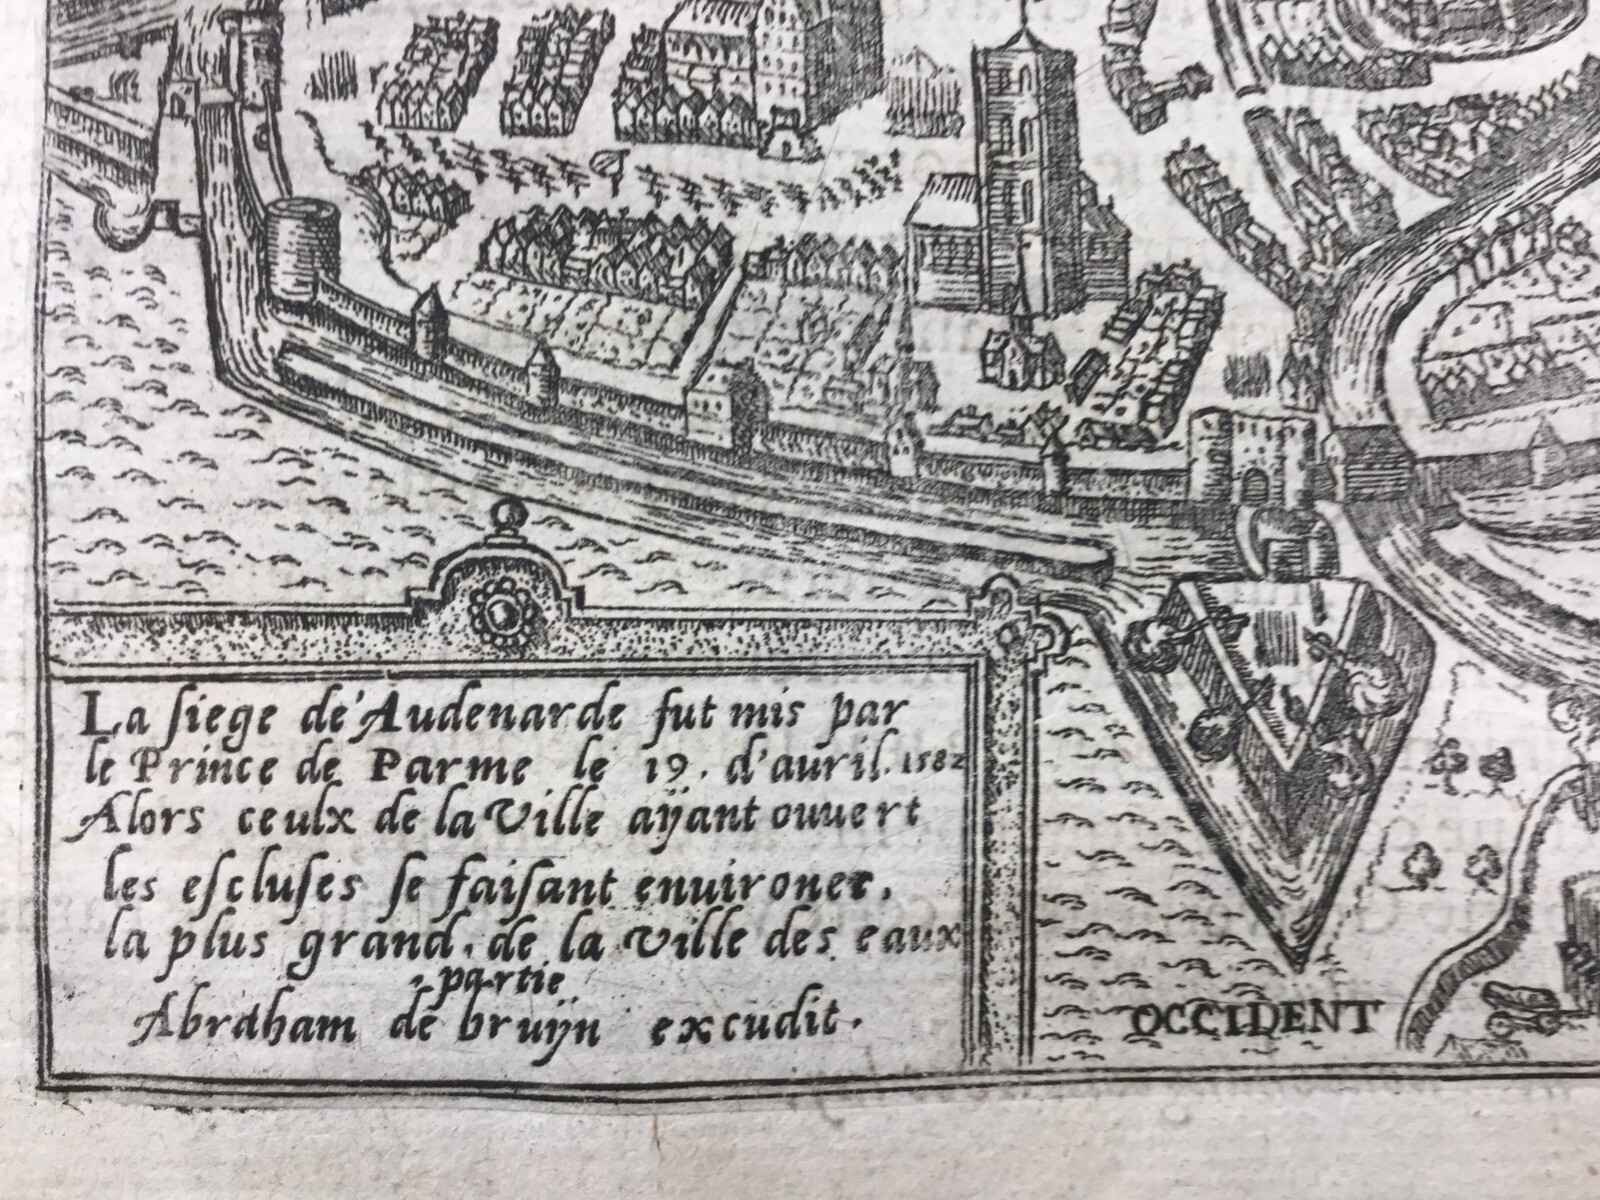 La siege de'Audenarde fut mis par
le Prince de Parme le 19. d'auril. 1582
Alors ceulx de la Ville aÿant ouuert
les escluses se faisant enuironer,
la plus grand. de la Ville des eaux
partie
Abraham de bruÿn excudit.
OCCIDENT